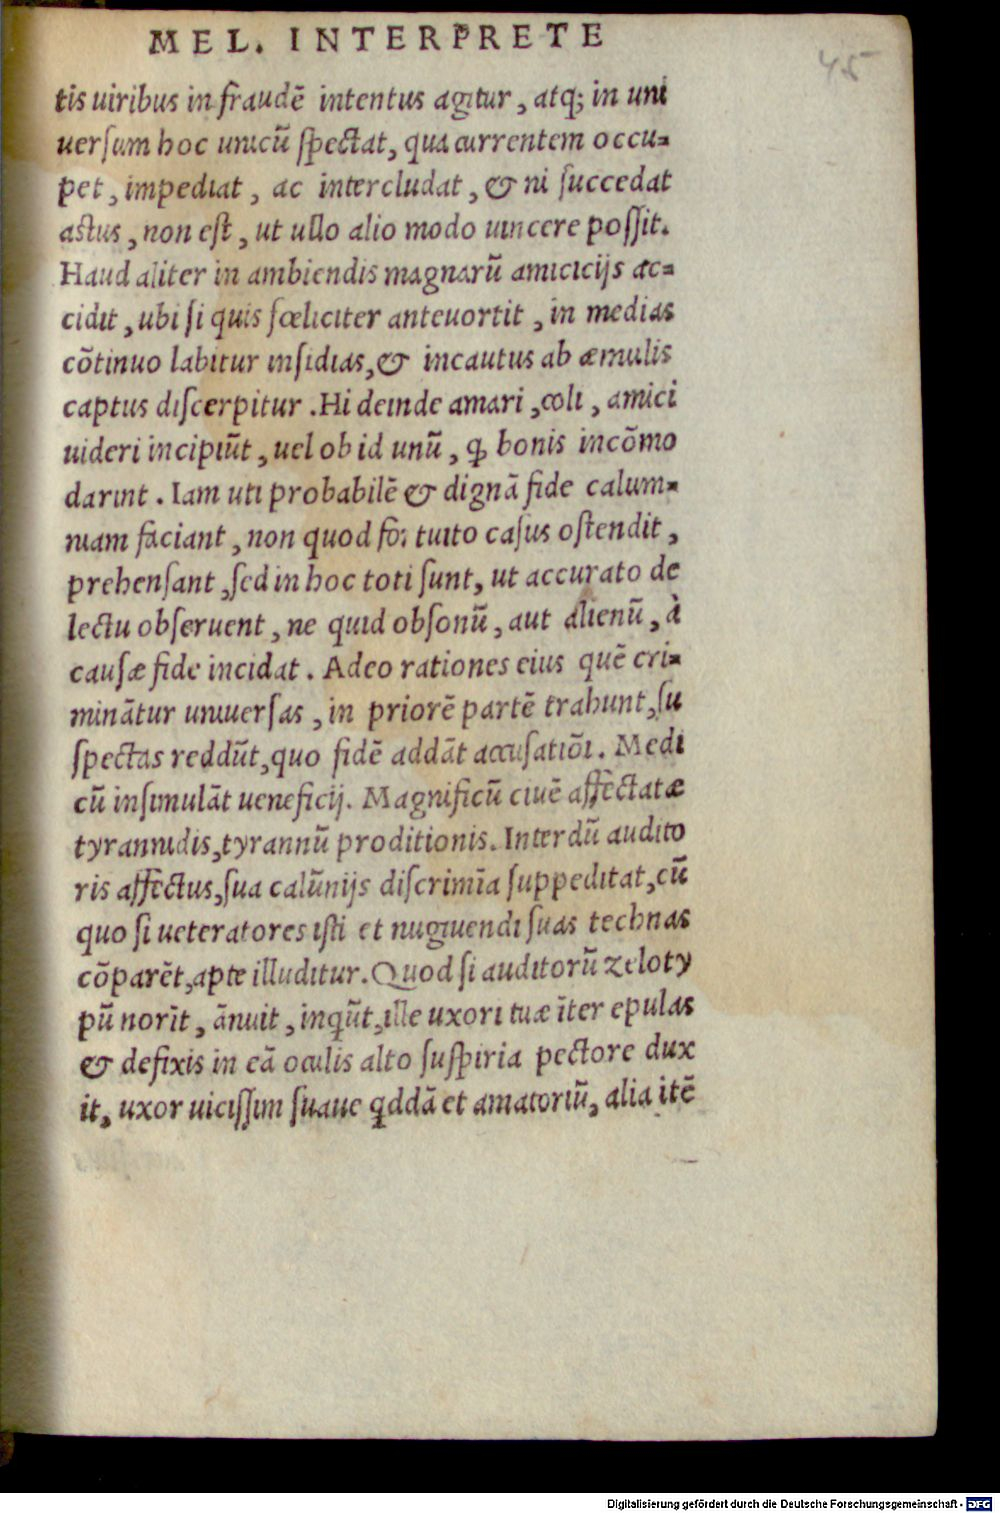 MEL. INTERPRETE
45
tis uiribus in fraudē intentus agitur, atq; in uni
uerſum hoc unicū ſpectat, qua currentem occu-
pet, impediat, ac intercludat, & ni ſuccedat
astus, non eſt, ut ullo alio modo uincere poſſit.
Haud aliter in ambiendis magnarū amicicijs ac-
cidit, ubi ſi quis fœliciter anteuortit, in medias
cōtinuo labitur inſidias, & incautus ab æmulis
captus diſcerpitur. Hi deinde amari, coli, amici
uideri incipiūt, uel ob id unū, ꝙ bonis incōmo
darint. Iam uti probabilē & dignā fide calum-
niam faciant, non quod for tuito caſus oſtendit,
prehenſant, ſed in hoc toti ſunt, ut accurato de
lectu obſeruent, ne quid obſonū, aut alienū, à
cauſæ fide incidat. Adeo rationes eius quē cri-
minātur uniuerſas, in priorē partē trahunt, ſu
ſpectas reddūt, quo fidē addāt accuſatiōi. Medi
cū inſimulāt ueneficij. Magnificū ciuē affectatæ
tyrannidis, tyrannū proditionis. Interdū audito
ris affectus, ſua calūnijs diſcrimīa ſuppeditat, cū
quo ſi ueteratores iſti et nugiuendi ſuas technas
cōparēt, apte illuditur. Quod ſi auditorū zeloty
pū norīt, ānuit, inqūt, ille uxori tuæ īter epulas
& defixis in eā oculis alto ſuſpiria pectore dux
it, uxor uiciſſim ſuaue qddā et amatoriū, alia itē
Digitalisierung gefördert durch die Deutsche Forschungsgemeinschaft - DFG